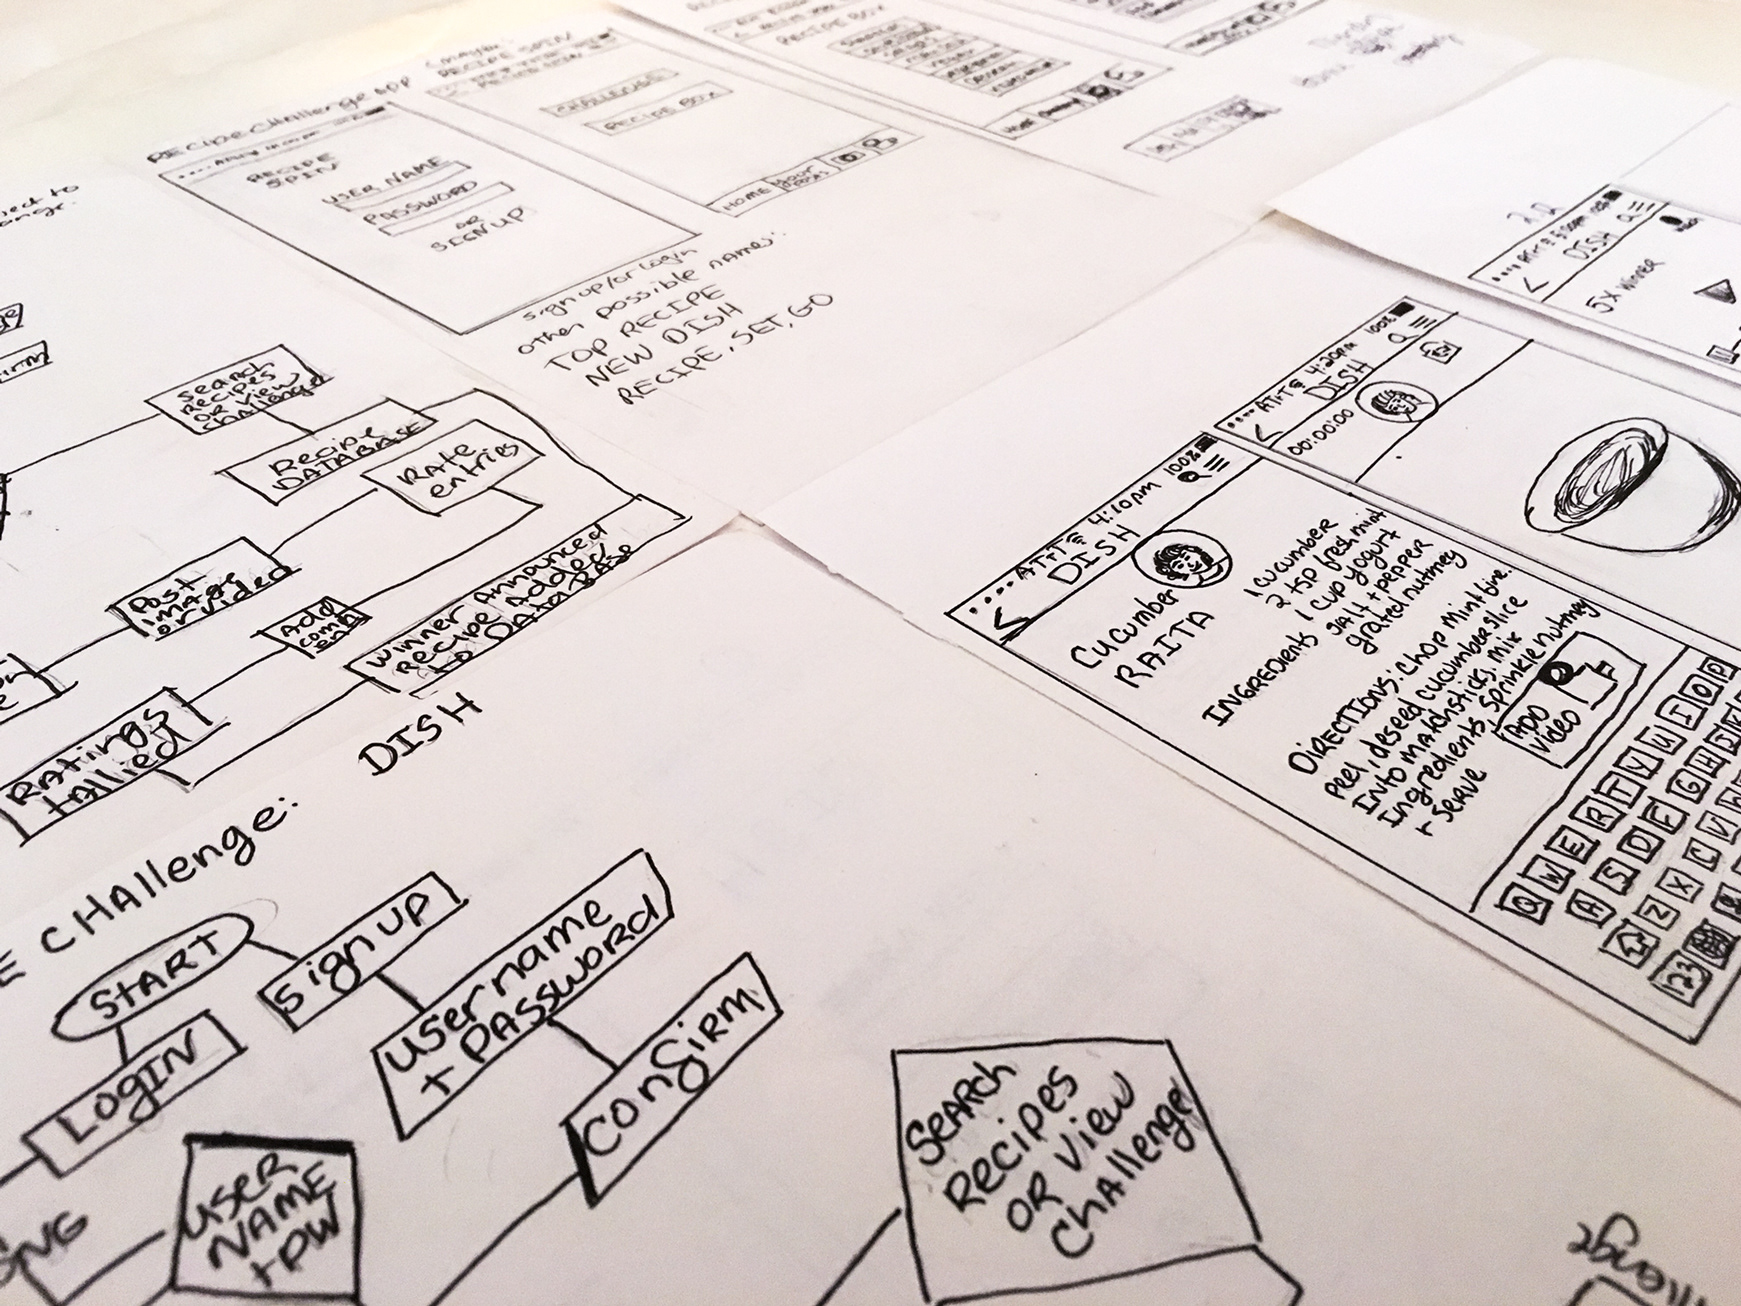 RECIPE CHAllenge APP
RECIPE
SPIN
USER NAME
PASSWORD
OR
SIGN UP
sign up/or login
other possible names:
TOP RECIPE
NEW DISH
RECIPE, SET, GO
RECIPE SPIN
CHALLENGE
RECIPE BOX
HOME
RECIPE BOX
Search
Recipes
OR View
Challenge
Recipe
DATABASE
RATE
entries
Post
image
or video
Add
comment
Winner Announced
Recipe Added
to DATABASE
RATings
tallied
DISH
E CHAllenge:
START
sign up
username
+ PASSWORD
LOGIN
confirm
USER
NAME
+ PW
SEARCH
Recipes
OR View
Challenge
AT+T 4:10pm 100%
DISH
Cucumber
RAITA
INGREDients
1 cucumber
2 tsp fresh mint
1 cup yogurt
salt + pepper
grated nutmeg
DIRECTIONS: Chop mint fine.
Peel, deseed cucumber slice
Into matchsticks. Mix
Ingredients sprinkle nutmeg
+ serve
ADD
Video
Q W E R T Y U I O P
A S D F G H J K
Z X C V
123
AT+T 4:20pm 100%
DISH
00:00:00
DISH
5X Winner